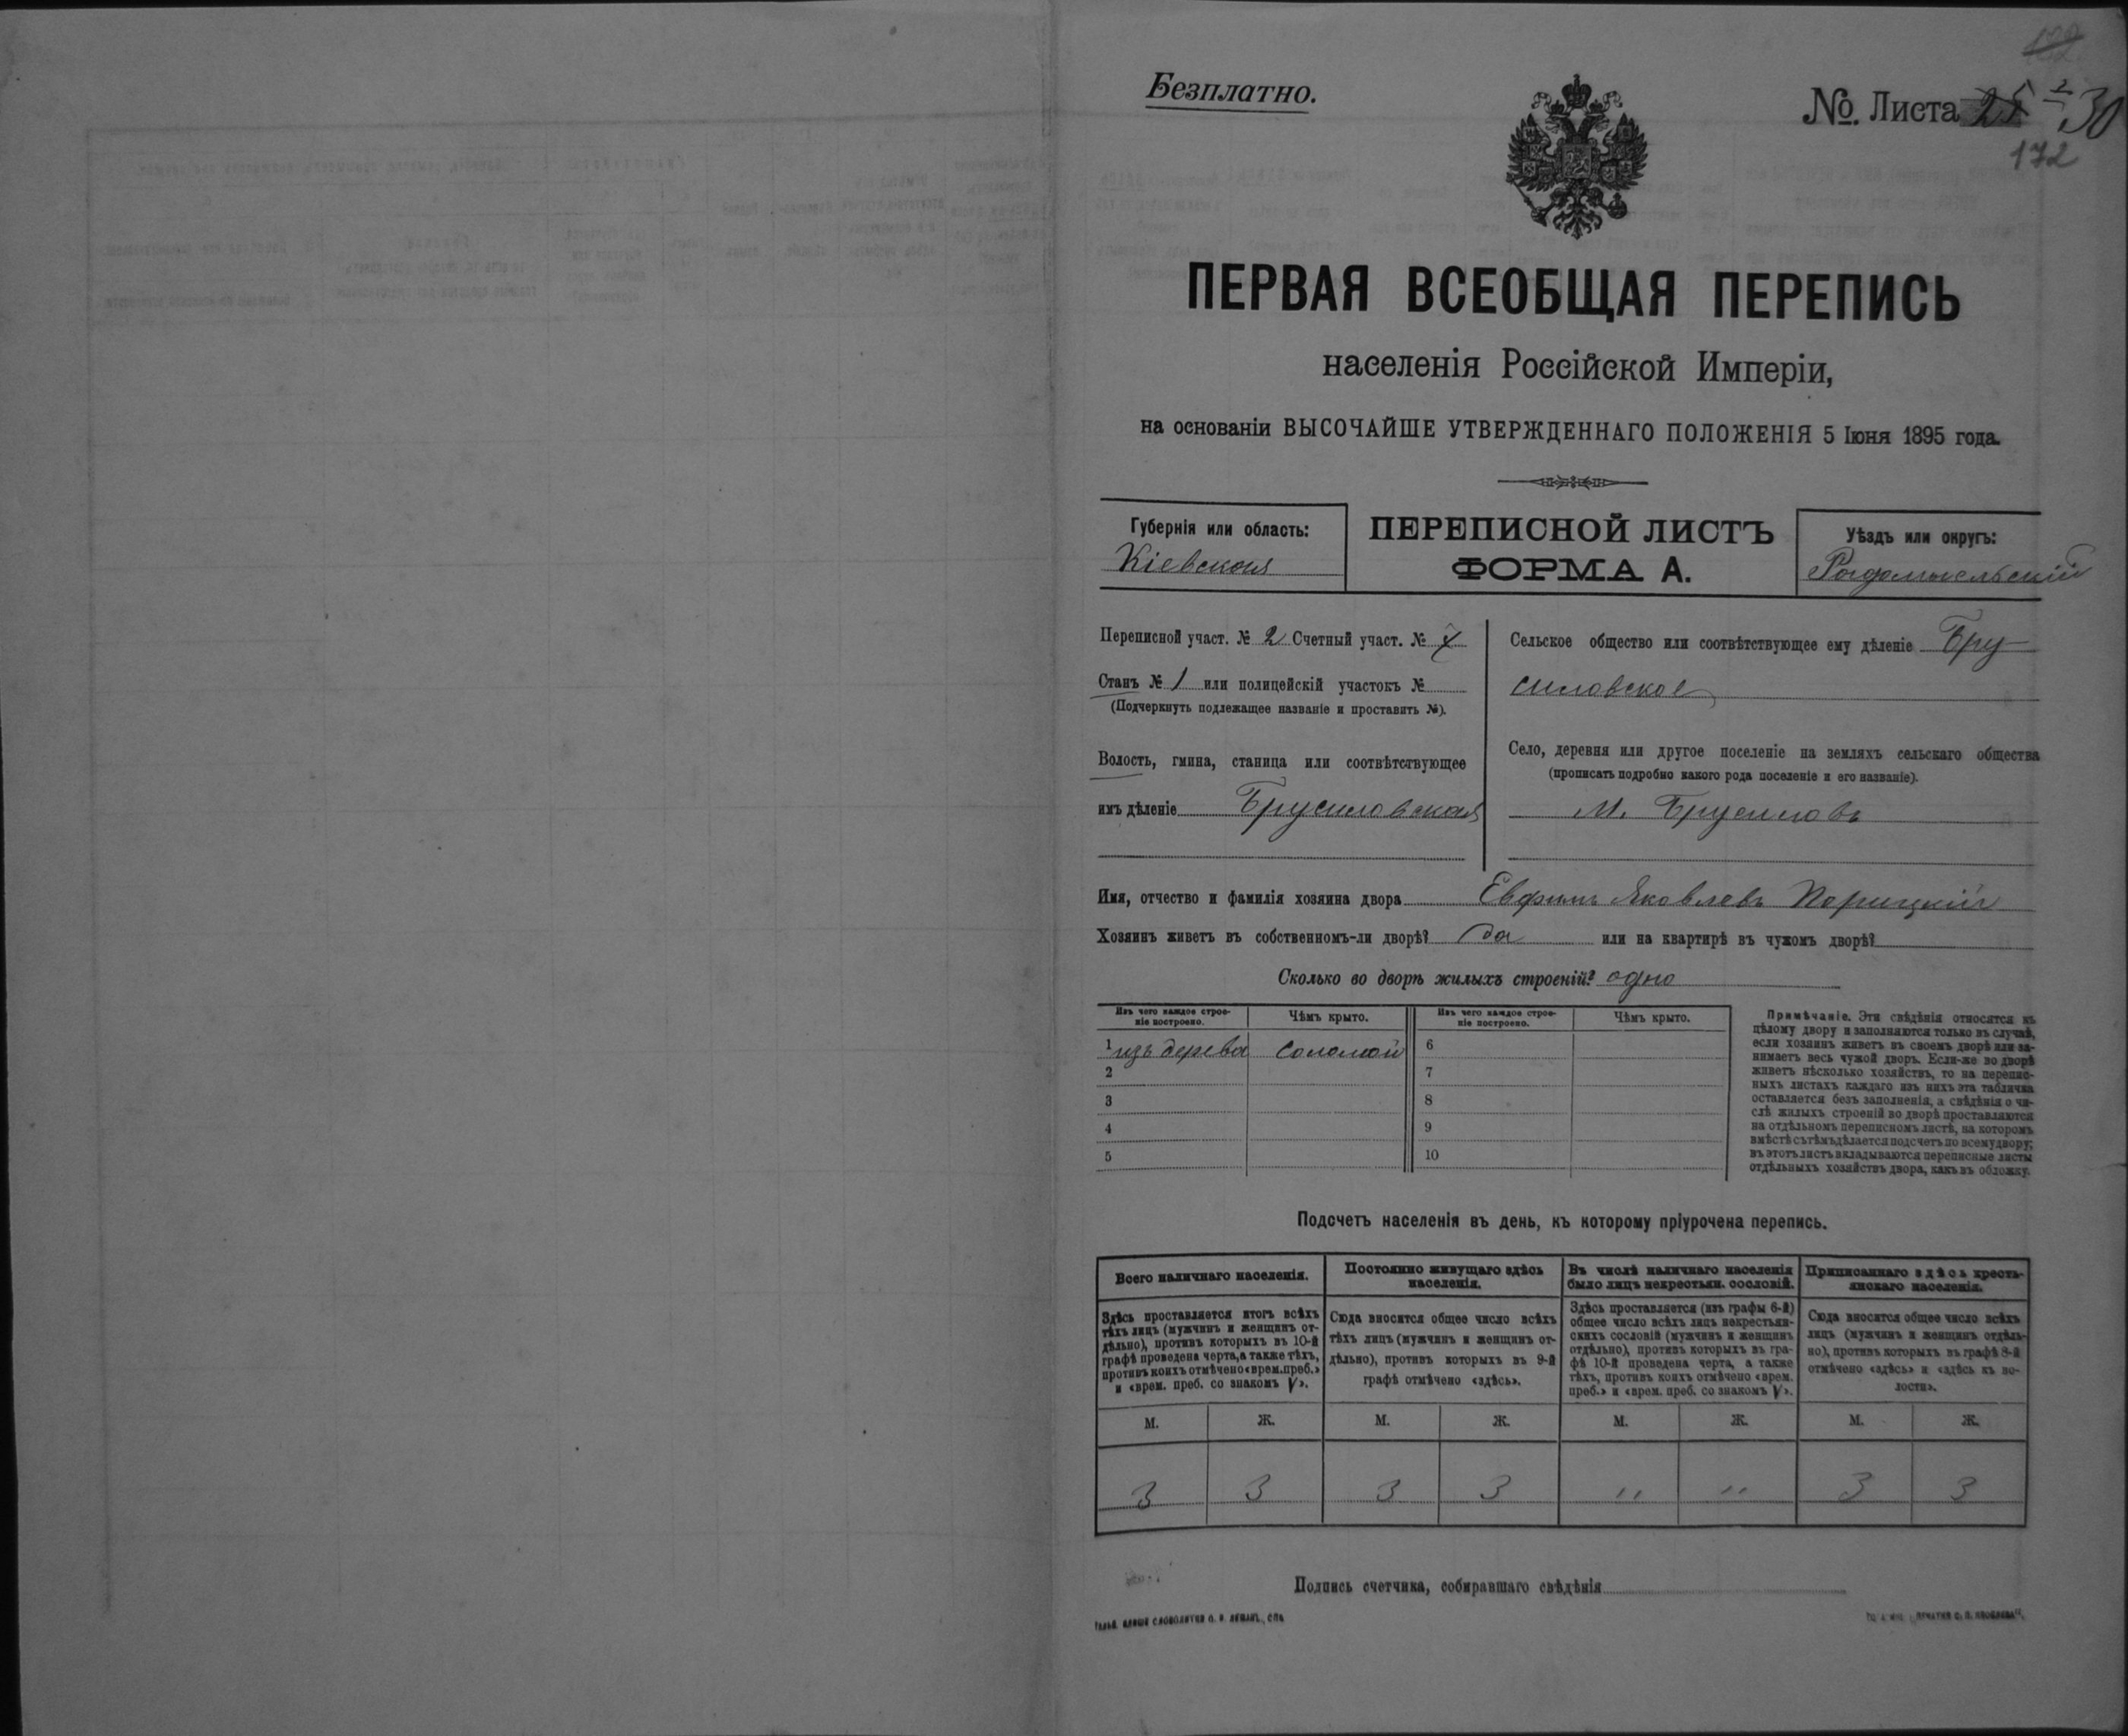 Безплатно.
№. Листа 30
172
ПЕРВАЯ ВСЕОБЩАЯ ПЕРЕПИСЬ
населенія Россійской Имперіи,
на основаніи ВЫСОЧАЙШЕ УТВЕРЖДЕННАГО ПОЛОЖЕНІЯ 5 Іюня 1895 года.
Губернія или область:
Кіевская
ПЕРЕПИСНОЙ ЛИСТЪ
ФОРМА А.
Уѣздъ или округъ:
Радомысльскій
Переписной участ. № 2 Счетный участ. №
Станъ № 1 или полицейскій участокъ №
(Подчеркнуть подлежащее названіе и проставить №).
Волость, гмина, станица или соотвѣтствующее
имъ дѣленіе Брусиловская
Сельское общество или соотвѣтствующее ему дѣленіе Бру
силовское
Село, деревня или другое поселеніе на земляхъ сельскаго общества
(прописать подробно какого рода поселеніе и его названіе).
М. Брусиловъ
Имя, отчество и фамилія хозяина двора Евфимъ Яковлевъ Порицкій
Хозяинъ живетъ въ собственномъ-ли дворѣ? да или на квартирѣ въ чужомъ дворѣ?
Сколько во дворѣ жилыхъ строеній? одно
Изъ чего каждое строе-
ніе построено.
Чѣмъ крыто.
Изъ чего каждое строе-
ніе построено.
Чѣмъ крыто.
1 изъ дерева соломой 6
2 7
3 8
4 9
5 10
Примѣчаніе. Эти свѣдѣнія относятся къ
цѣлому двору и заполняются только въ случаѣ,
если хозяинъ живетъ въ своемъ дворѣ или за-
нимаетъ весь чужой дворъ. Если-же во дворѣ
живетъ нѣсколько хозяйствъ, то на перепис-
ныхъ листахъ каждаго изъ нихъ эта табличка
оставляется безъ заполненія, а свѣдѣнія о чи-
слѣ жилыхъ строеній во дворѣ проставляются
на отдѣльномъ переписномъ листѣ, на которомъ
вмѣстѣ съ тѣмъ дѣлается подсчетъ по всему двору;
въ этотъ листъ вкладываются переписные листы
отдѣльныхъ хозяйствъ двора, какъ въ обложку.
Подсчетъ населенія въ день, къ которому пріурочена перепись.
Всего наличнаго населенія.
Здѣсь проставляется итогъ всѣхъ
тѣхъ лицъ (мужчинъ и женщинъ от-
дѣльно), противъ которыхъ въ 10-й
графѣ проведена черта, а также тѣхъ,
противъ коихъ отмѣчено «врем. преб.»
и «врем. преб. со знакомъ V».
Постоянно живущаго здѣсь
населенія.
Сюда вносится общее число всѣхъ
тѣхъ лицъ (мужчинъ и женщинъ от-
дѣльно), противъ которыхъ въ 9-й
графѣ отмѣчено «здѣсь».
Въ числѣ наличнаго населенія
было лицъ некрестьян. сословій.
Здѣсь проставляется (изъ графы 6-й)
общее число всѣхъ лицъ некрестьян-
скихъ сословій (мужчинъ и женщинъ
отдѣльно), противъ которыхъ въ гра-
фѣ 10-й проведена черта, а также
тѣхъ, противъ коихъ отмѣчено «врем.
преб.» и «врем. преб. со знакомъ V».
Приписаннаго здѣсь кресть-
янскаго населенія.
Сюда вносится общее число всѣхъ
лицъ (мужчинъ и женщинъ отдѣль-
но), противъ которыхъ въ графѣ 8-й
отмѣчено «здѣсь» и «здѣсь къ во-
лости».
М. Ж. М. Ж. М. Ж. М. Ж.
3 3 3 3 " " 3 3
Подпись счетчика, собиравшаго свѣдѣнія